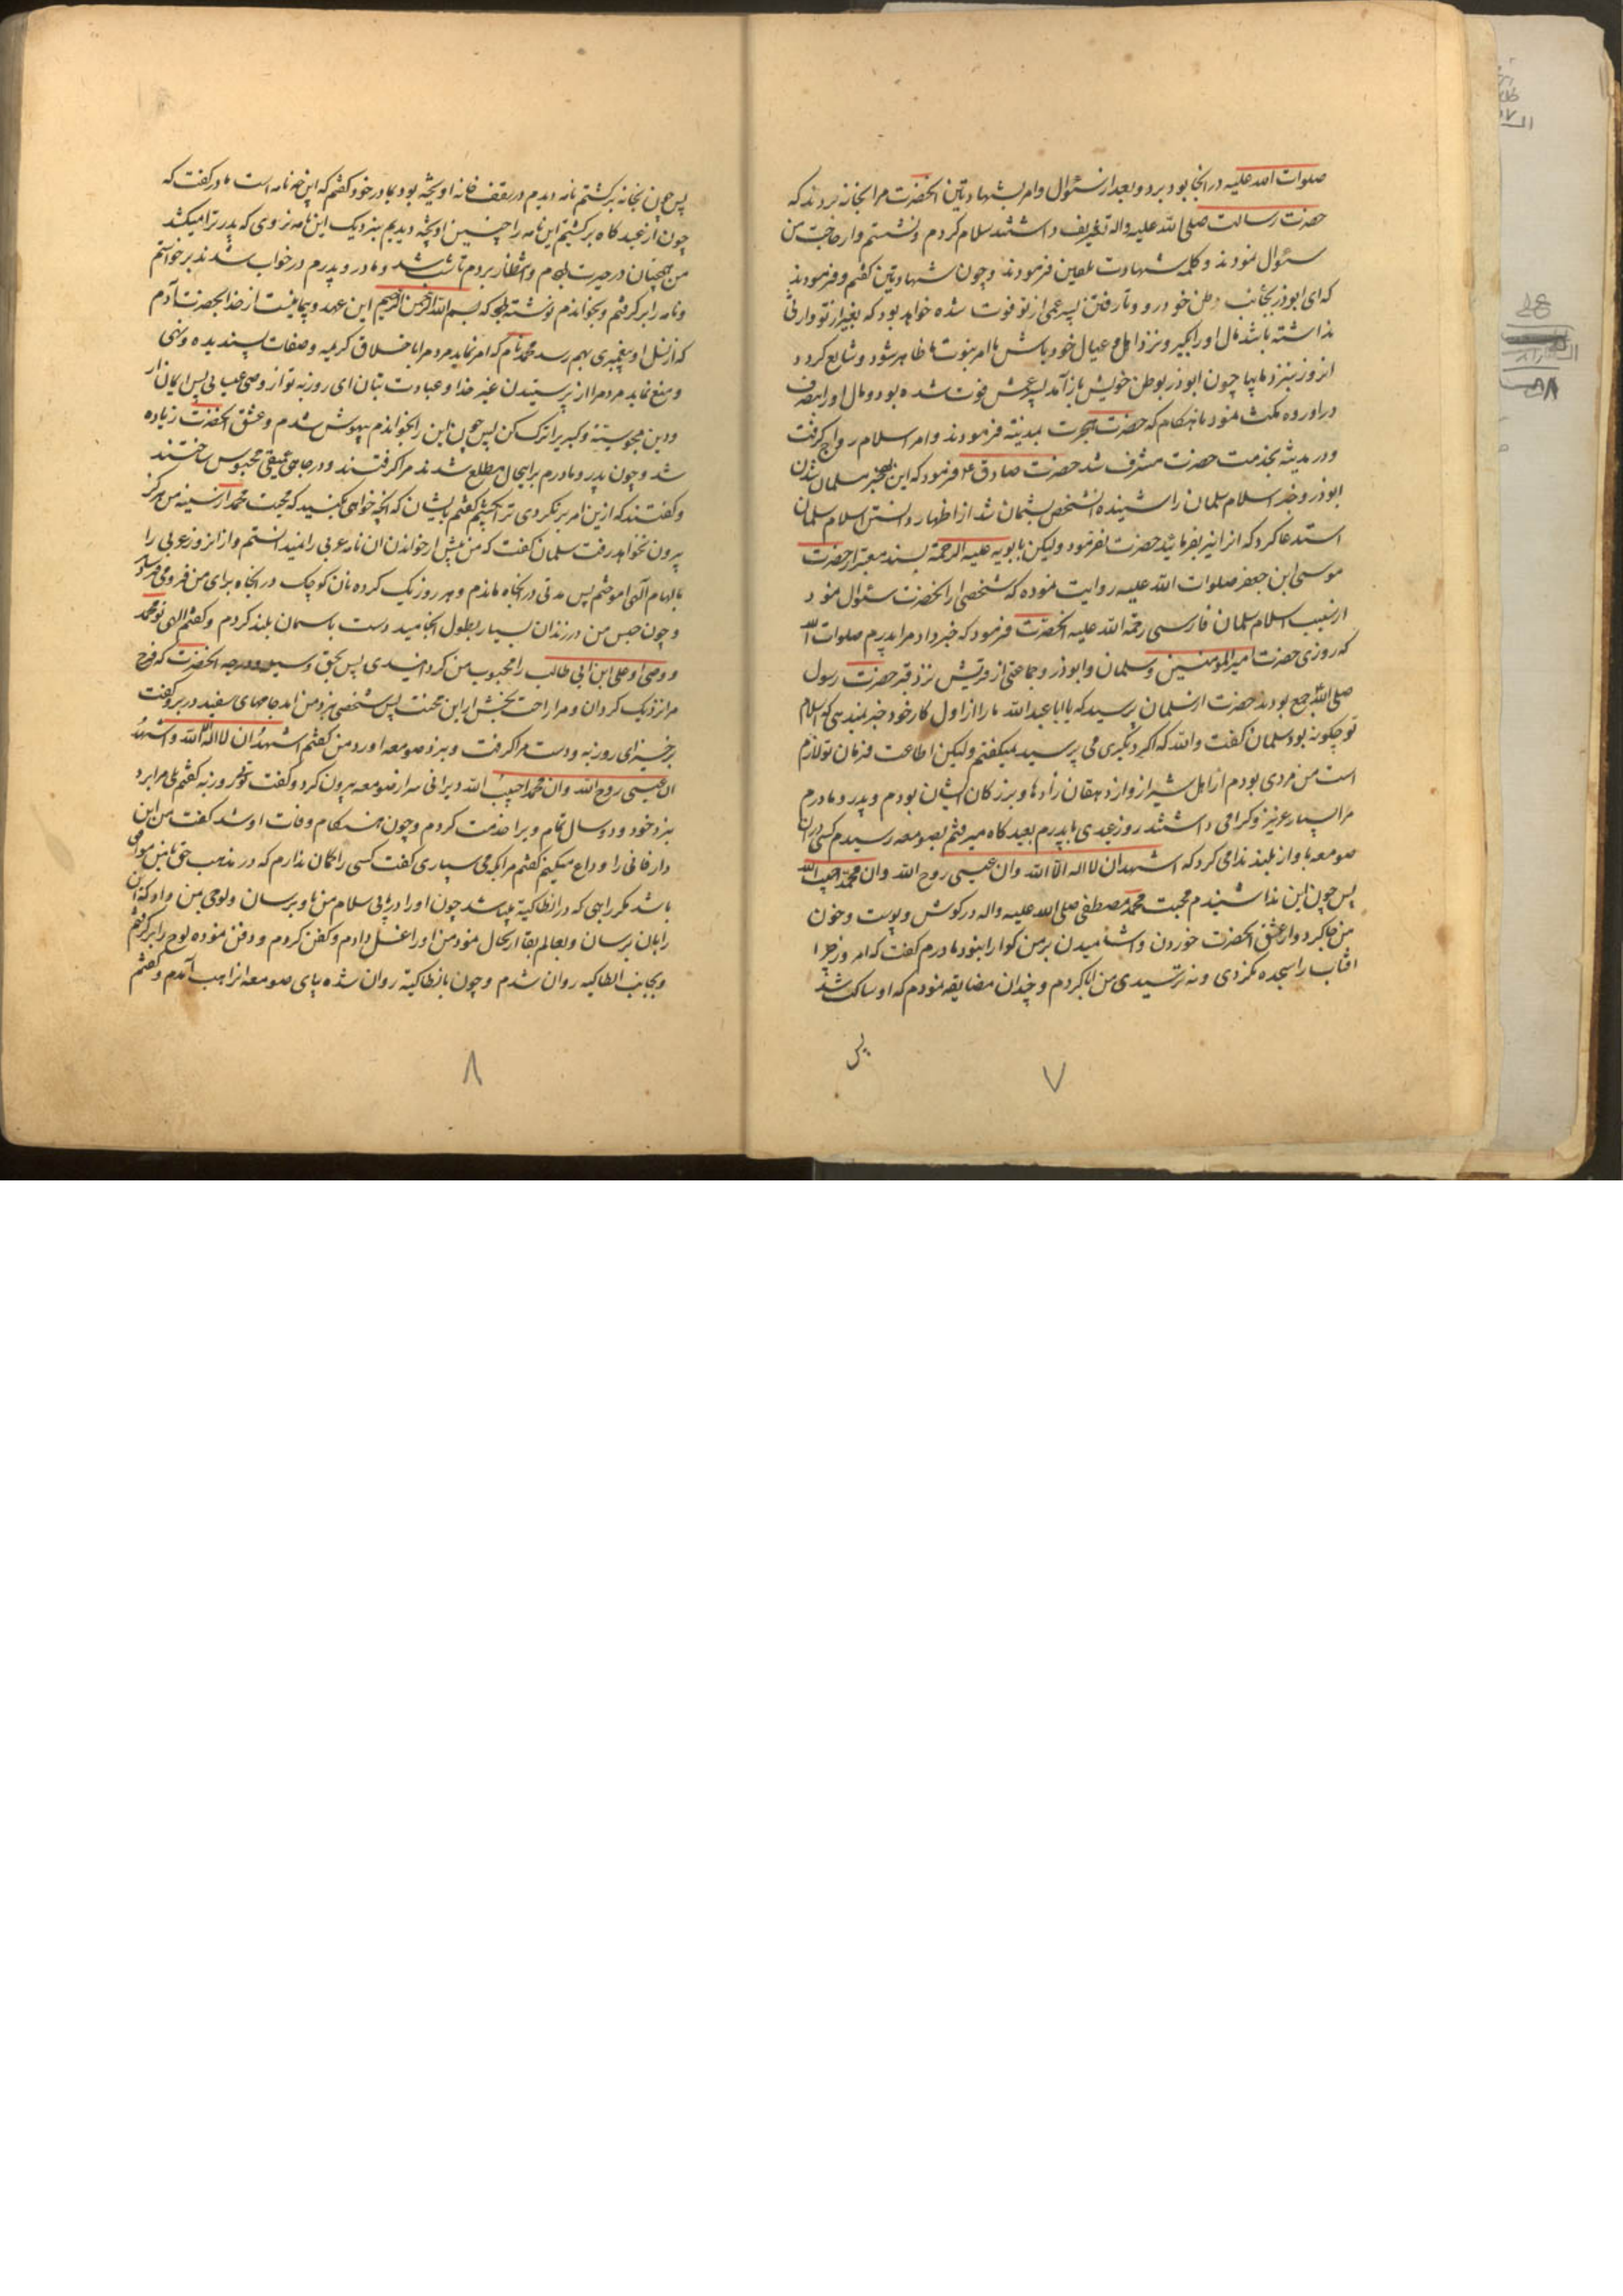 صلوات الله علیه در انجا بود برد و بعد از سئوال و امر بشهادتین انحضرت مرا بخانه بردند که
حضرت رسالت صلی الله علیه واله تشریف داشتند سلام کردم و نشستم و از حاجت من
سئوال نمودند و کلمه شهادت تلقین فرمودند و چون شهادتین گفتم و فرمودند
که ای ابوذر بجانب وطن خود رو و تا رفتن پسر عمی از تو فوت شده خواهد بود که بغیر از تو وارثی
نداشته باشد مال او را بگیر و نزد اهل و عیال خود باش تا امر نبوت ما ظاهر شود و شایع کردد
انروز بنزد ما بیا چون ابوذر بوطن خویش باز آمد پسر عمش فوت شده بود و مال او را بتصرف
در اورده مکث نمود تا هنکام که حضرت هجرت بمدینه فرمودند و امر اسلام رواج گرفت
و در مدینه بخدمت حضرت مشرف شد حضرت صادق ع فرمود که این خبر مسلمان شدن
ابوذر و خبر اسلام سلمان را نشنیده انشخص پشیمان شد از اظهار دانستن اسلام سلمان
استدعا کرد که انرا نیز بفرمائید حضرت نفرمود ولیکن بابویه علیه الرحمة بسند معتبر از حضرت
موسی ابن جعفر صلوات الله علیه روایت نموده که شخصی از انحضرت سئوال نمود
از سبب اسلام سلمان فارسی رحمة الله علیه انحضرت فرمود که خبر داد مرا پدرم صلوات الله
که روزی حضرت امیرالمومنین و سلمان و ابوذر و جماعتی از قریش نزد قبر حضرت رسول
صلی الله جمع بودند حضرت از سلمان پرسید که یا ابا عبدالله ما را از اول کار خود خبر نمیدهی که اسلام
تو چکونه بود سلمان کفت والله که اکر دیکری می پرسید نمیکفتم ولیکن اطاعت فرمان تو لازم
است من مردی بودم از اهل شیراز و از دهقان زاده‌ها و بزرکان ایشان بودم و پدر و مادرم
مرا بسیار عزیز و کرامی داشتند روز عیدی با پدرم بعید کاه میرفتم بصومعه رسیدم کسی در ان
صومعه باواز بلند ندا می کرد که اشهد ان لا اله الا الله وان عیسی روح الله وان محمد حبیب الله
پس چون این ندا شنیدم محبت محمد مصطفی صلی الله علیه واله در کوش و پوست و خون
من جا کرد و از عشق انحضرت خوردن و اشامیدن بر من کوارا نبود مادرم کفت که امروز چرا
افتاب را سجده نکردی و نه پرستیدی من ابا کردم و چندان مضایقه نمودم که او ساکت شد
پس
۷
پس چون بخانه برکشتم نامه دیدم در سقف خانه اویخته بود بمادر خود کفتم که این چه نامه است مادر کفت که
چون از عید کاه برکشتیم این نامه را چنین اویخته دیدیم بنزدیک این نامه نروی که پدر ترا میکشد
من همچنان در حیرت بودم و انتظار بردم تا شب شد و مادر و پدرم در خواب شدند برخواستم
و نامه را برکرفتم و بخواندم نوشته بود که بسم الله الرحمن الرحیم این عهد و پیمانیست از خدا بحضرت آدم
که از نسل او پیغمبری بهم رسد محمد نام که امر نماید مردم را باخلاق کریمه و صفات پسندیده و نهی
و منع نماید مردم را از پرستیدن غیر خدا و عبادت بتان ای روزبه تو از وصی عیسی پس ایمان ار
و دین مجوسیته و کبر را ترک کن پس چون این را بخواندم بیهوش شدم و عشق انحضرت زیاده
شد و چون پدر و مادرم براینحال مطلع شدند مرا کرفتند و در چاهی عمیقی محبوس ساختند
و کفتند که ازین امر برنکردی ترا بکشیم کفتم بایشان که انچه خواهی بکنید که محبت محمد از سینه من هرکز
بیرون نخواهد رفت سلمان کفت که من پیش از خواندن ان نامه عربی را نمیدانستم و از انروز عربی را
بالهام آلهی اموختم پس مدتی در انچاه ماندم و هر روز یک کرده نان کوچک در انچاه برای من فرو می فرستاد
و چون حبس من در زندان بسیار بطول انجامید دست باسمان بلند کردم و کفتم الهی تو محمد
و وصی او علی ابن ابی طالب را محبوب من کردانیدی پس بحق وسیله و درجه انحضرت که فرج
مرا نزدیک کردان و مرا راحت بخش از این محنت پس شخصی بنزد من امد جامهای سفید در بر و کفت
برخیز ای روزبه و دست مرا کرفت و بنزد صومعه اورد من کفتم اشهد ان لا اله الا الله و اشهد
ان عیسی روح الله وان محمد حبیب الله دیرانی سر از صومعه بیرون کرد و کفت توئی روزبه کفتم بلی مرا برد
بنزد خود و دو سال تمام ویرا خدمت کردم و چون هنکام وفات او شد کفت من این
دار فانی را وداع میکنم کفتم مرا بکه می سپاری کفت کسی را کمان ندارم که در مذهب حق با من موافق
باشد مکر راهبی که در انطاکیة میباشد چون او را دریابی سلام من باو برسان و لوحی بمن داد که این
را باو برسان و بعالم بقا ارتحال نمود من او را غسل دادم و کفن کردم و دفن نموده لوح را برکرفتم
و بجانب انطاکیه روان شدم و چون بانطاکیة روان شده بپای صومعه انراهب آمدم و کفتم
۸